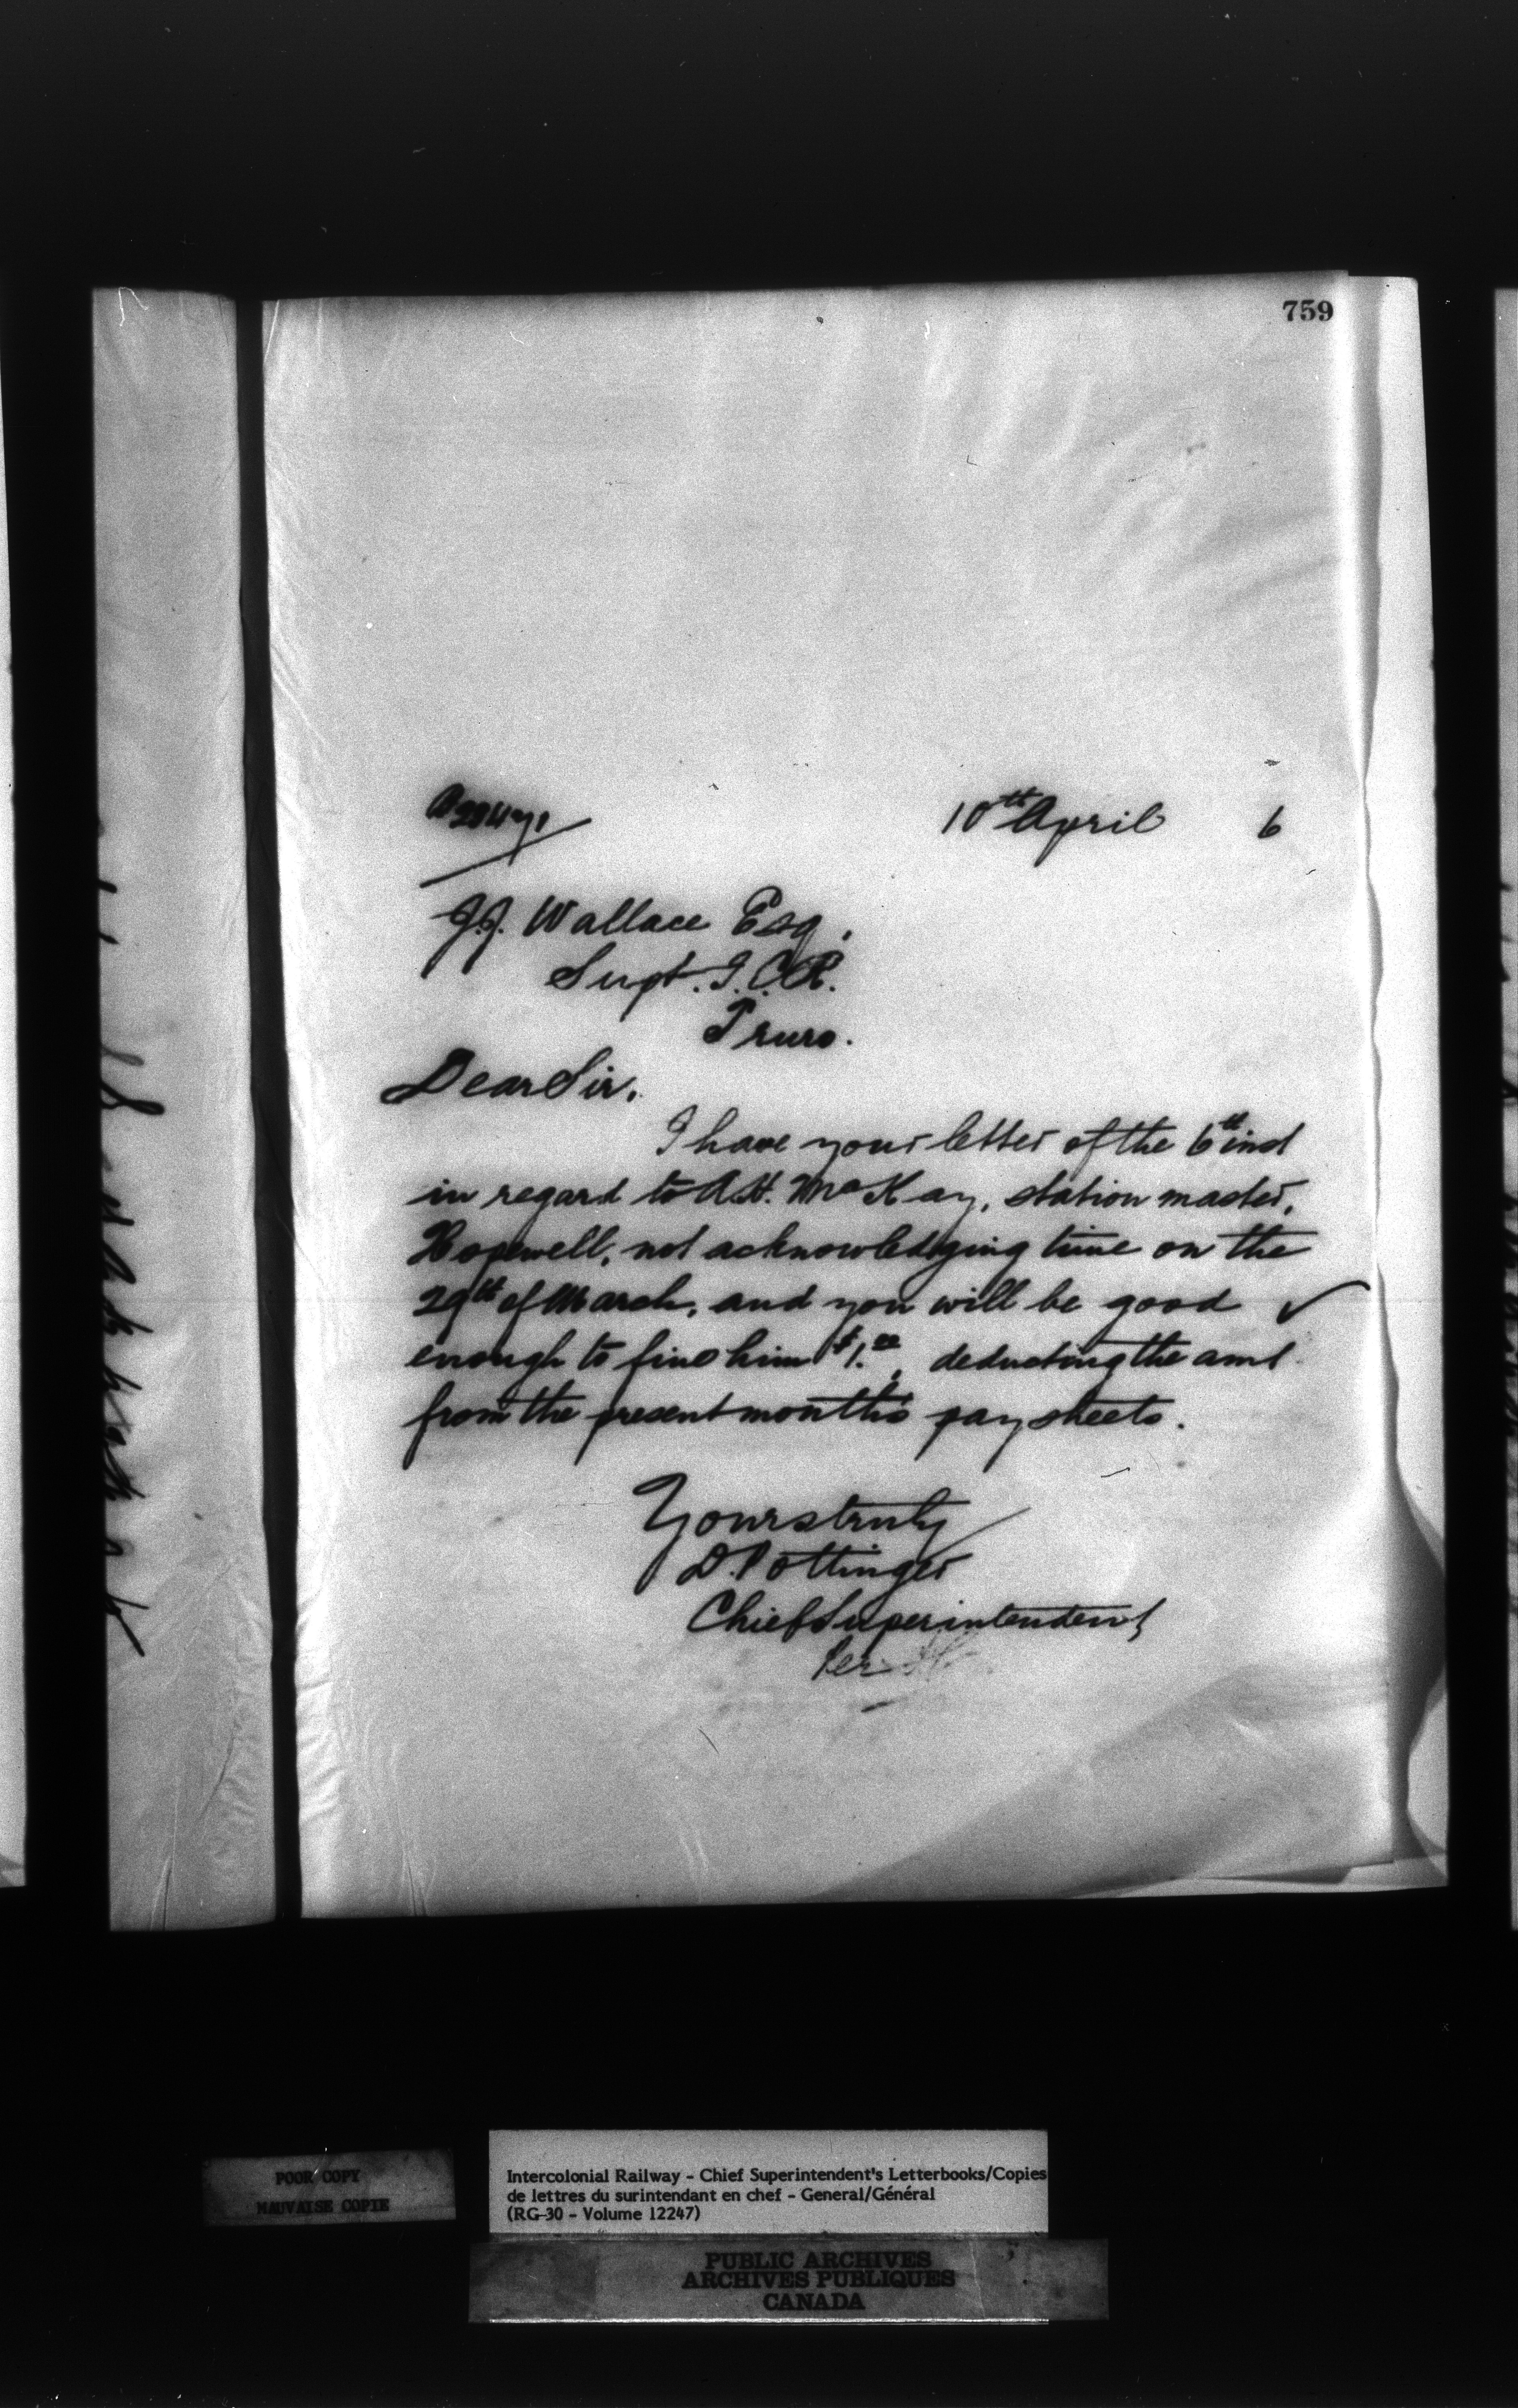 759
10th April 6
J.J. Wallace Esq.
Supt. I.C.R.
Truro.
Dear Sir.
I have your letter of the 6th inst
in regard to A.H. McKay, station master,
Hopewell, not acknowledging time on the
29th of March, and you will be good
enough to fine him $1.00, deducting the amt
from the present month's pay sheets.
Yours truly
D. Pottinger
Chief Superintendent
Per
POOR COPY
MAUVAISE COPIE
Intercolonial Railway - Chief Superintendent's Letterbooks/Copies
de lettres du surintendant en chef - General/Général
(RG-30 - Volume 12247)
PUBLIC ARCHIVES
ARCHIVES PUBLIQUES
CANADA